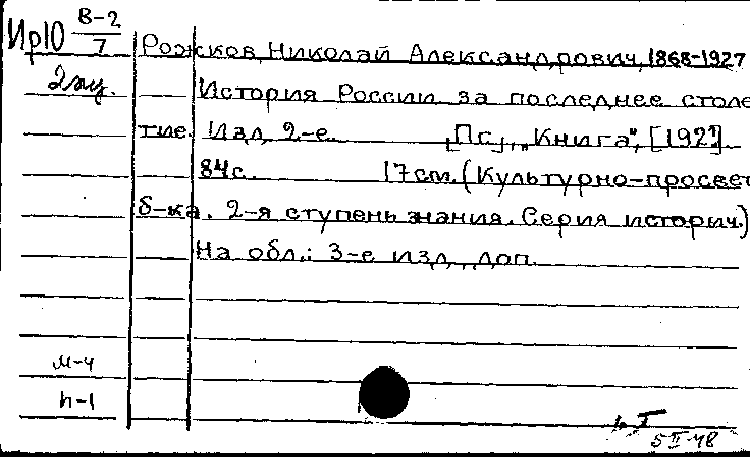 Ир10 В-2/7
Рожков, Николай Александрович, 1868-1927
2 экз. История России за последнее столе
тие. Изд. 2-е. [Пг], "Книга", [192?]
84с. 17см. (Культурно-просвет
б-ка. 2-я ступень знания. Серия историч.)
На обл.: 3-е изд., доп.
м-4
п-1
5 II 48